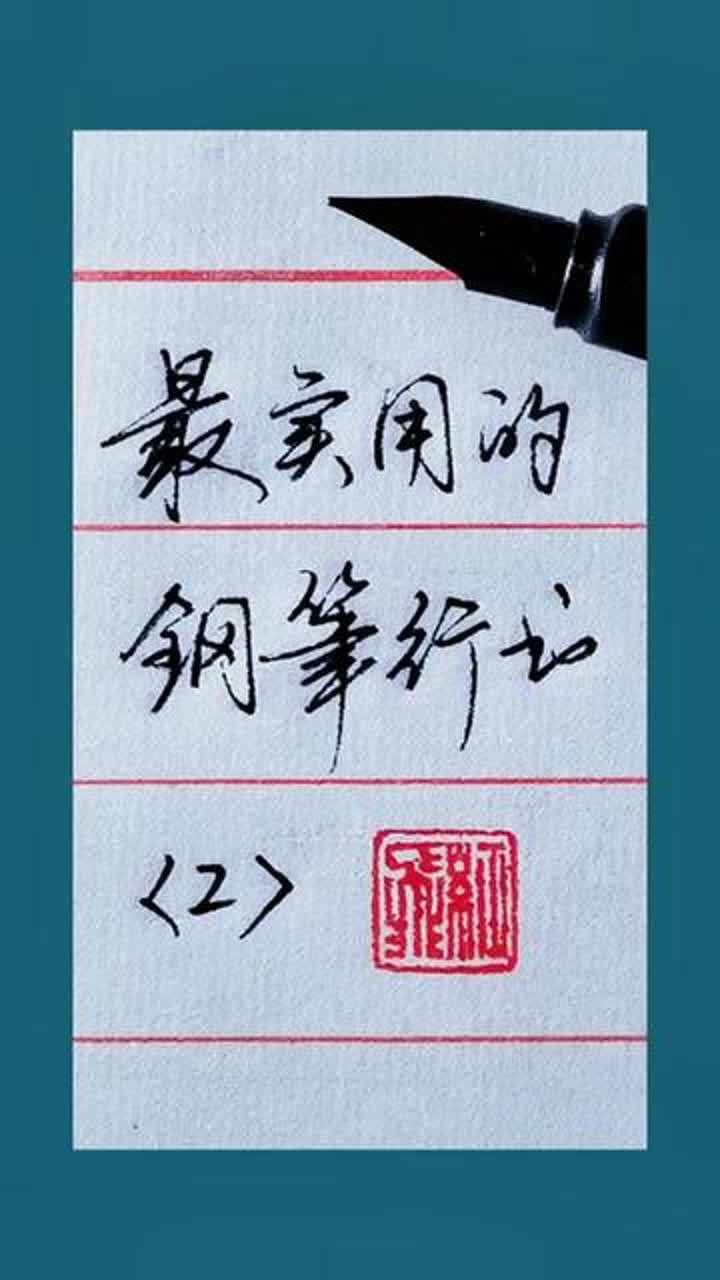 最实用的
钢筆行书
〈2〉